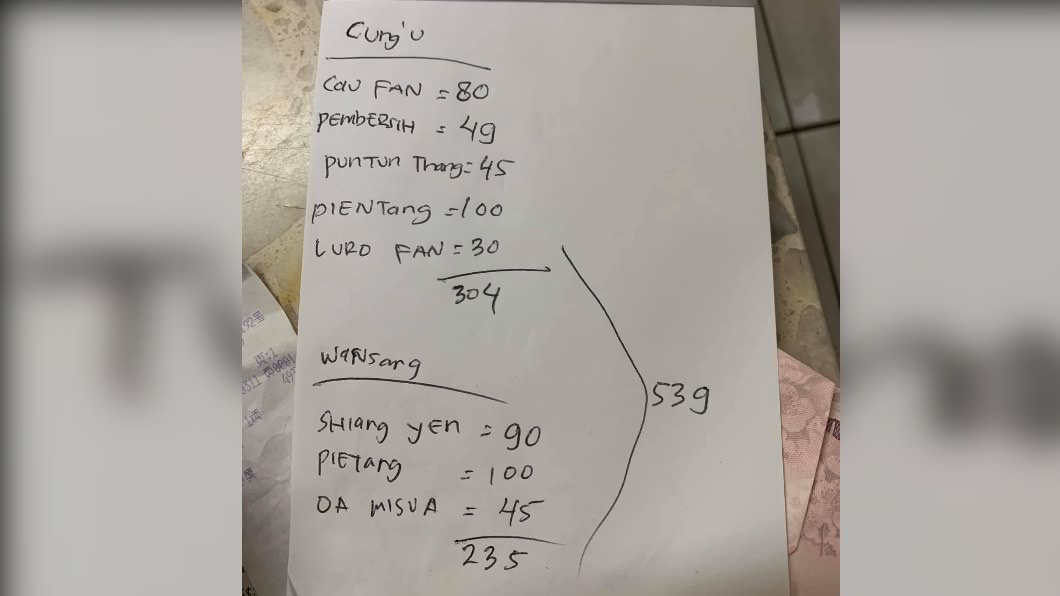 Cung'u
CAU FAN = 80
PEMBERSIH = 49
PUNTUN Thang = 45
PIENTang = 100
LURO FAN = 30
304
WANSang
SHIang yEn = 90
PIETang = 100
OA MISUA = 45
235
539
页:1